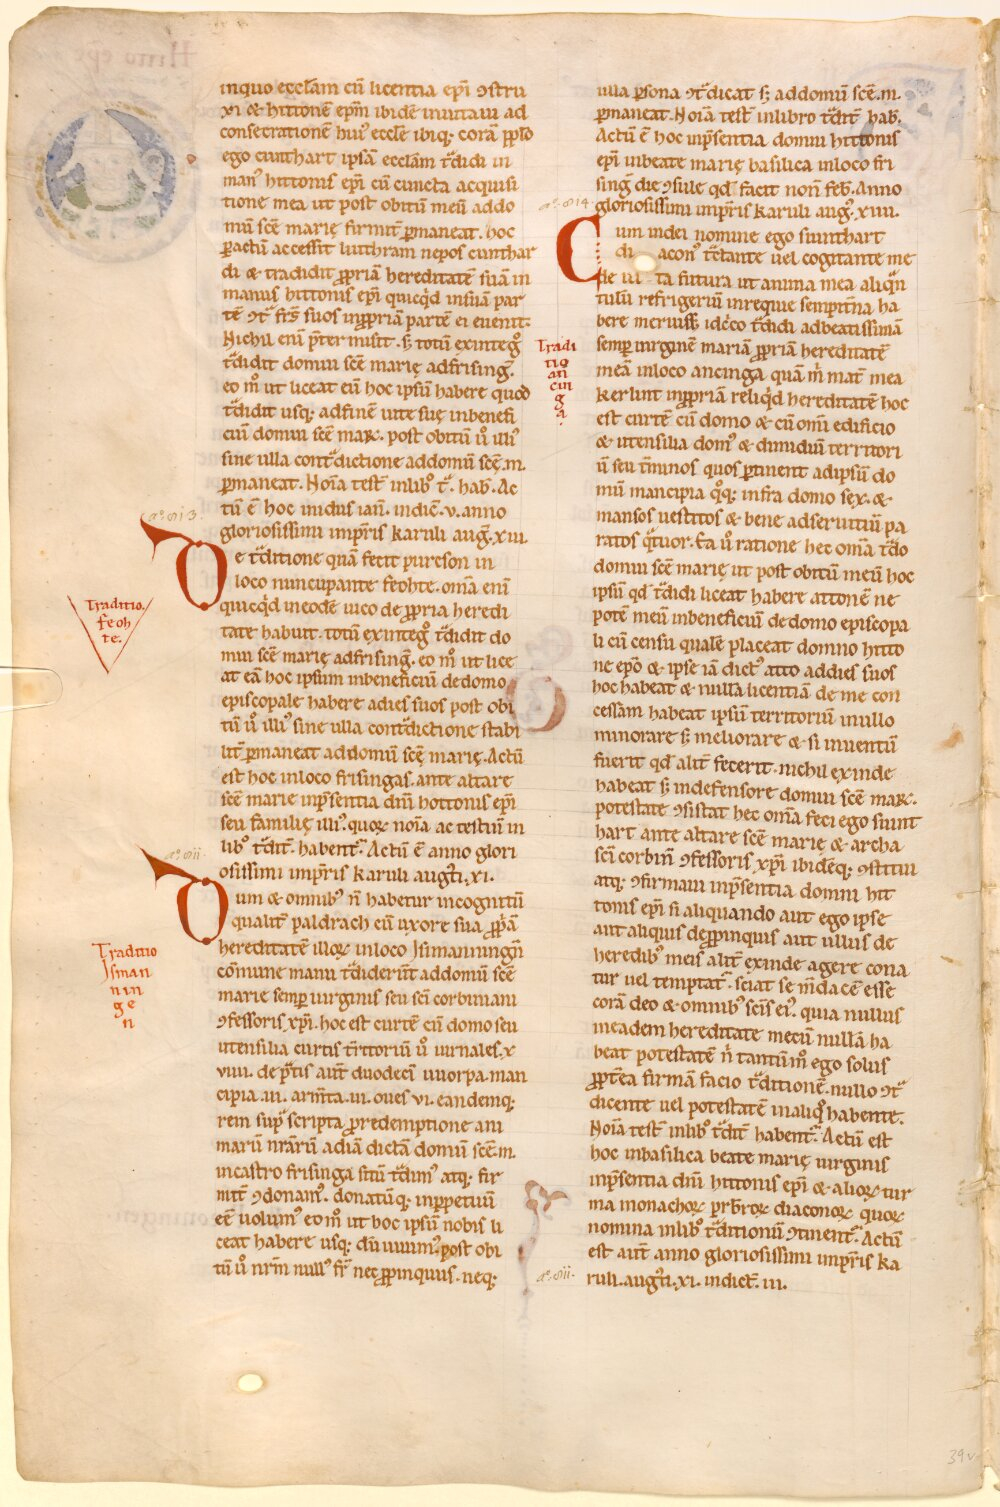 inquo ecclam cū licentia epi ꝯstru
xi & hittonē epm ibidē inuitaui ad
consecrationē hui' ecclę ibiq; corā pplo
ego cunthart ipsā ecclam t̄didi in
man' hittonis epi cū cuncta acquisi
tione mea ut post obitū meū addo
mū scē marię firmit̄ ꝑmaneat. hoc
ꝑactū accessit luthram nepos cunthar
di & tradidit ꝓpriā hereditatē suā in
manus hittonis epi quicq̇d insuā par
tē ꝯt̄ frs̄ suos inꝓpriā partē ei euenit.
Nichil enī p̄termisit. s; totū exinteg̊
t̄didit domui scē marię adfrisinḡ.
eo m̊ ut liceat eū hoc ipsū habere quod
t̄didit usq; adfinē uitę suę inbenefi
ciū domui scē maꝝ. post obitū ů illi'
sine ulla cont̄dictione addomū scę̄.m.
ꝑmaneat. Noīa test̄ inlib̊ t̄. hab̄. Ac
tū ē hoc inidus ian̄. indic̄. v. anno
gloriosissimi impr̄is karuli auḡ. xiii.
a°. 813.
De t̄ditione quā fecit purcson in
loco nuncupante feohte. om̄a enī
quicq̇d ineodē uico de ꝓpria heredi
tate habuit. totū exinteg̊ t̄didit do
mui scē marię adfrisinḡ. eo m̊ ut lice
at eā hoc ipsum inbeneficiū dedomo
episcopale habere adies suos post obi
tū ů illi' sine ulla cont̄dictione stabi
lit̄ ꝑmaneat addomū scę̄ marię. Actū
est hoc inloco frisingas. ante altare
scē marie inp̄sentia dn̄i hottonis epi
seu familię illi'. quoꝝ noīa ac testiū in
lib̊ t̄dit̄. habent̄. Actū ē anno glori
osissimi impr̄is karuli aug̊ti. xi.
Traditio.
feoh
te.
a°. 811.
Dum & omnib' n̄ habetur incognitū
qualit̄ paldrach cū uxore sua ꝓp̄ā
hereditatē illoꝝ inloco Jsimanningn̄
cōmune manu t̄diderūt addomū scē
marię semꝑ uirginis seu sci corbiniani
ꝯfessoris xpi. hoc est curtē cū domo seu
utensilia curtis t̄ritoriū ů iurnales. x
viiii. de p̄tis aut̄ duodeci uuorpa. man
cipia. iii. arm̄ta. iii. oues vi. eandemq;
rem sup̄ scripta ꝓredemptione ani
marū nr̄arū adiā dictā domū scē.m.
incastro frisinga sitū t̄dim' atq; fir
mit̄ ꝯdonam'. donatūq; inꝑpetuū
eē uolum' eo m̊ ut hoc ipsū nobis li
ceat habere usq; dū uiuim'. post obi
tū ů nr̄m null' fr̄ nec ꝓpinquus. neq;
Traditio
Jsman
nin
ge
n
ulla ꝑsona ꝯt̄dicat s; addomū scē.m.
ꝑmaneat. Noīa test̄ inlibro t̄dit̄ hab̄.
Actū ē hoc inp̄sentia domni hittonis
epi inbeate marię basilica inloco fri
sinḡ die ꝯsule qd̄ facit non̄ feb̄. Anno
gloriosissimi impr̄is karuli aug̊. xiiii.
a°. 814.
Cum indei nomine ego siunthart
di acon' t̄ctante uel cogitante me
de ui ta futura ut anima mea aliqn̄
tulū refrigeriū inrequie sempit̄na ha
bere meruiss; idc̊co t̄didi adbeatissimā
semꝑ uirginē mariā ꝓpriā hereditatē
meā inloco ancinga quā m̄ mat̄ mea
kerlint inꝓpriā reliq̇d hereditatē hoc
est curtē cū domo & cū omī edificio
& utensilia dom' & dimidiū territori
ū seu t̄minos quos ꝑtinent adipsū do
mū mancipia q̊q; infra domo sex. &
mansos uestitos & bene adseruitiū pa
ratos q̄tuor. Ea ů ratione hec om̄a t̄do
domui scē marię ut post obitū meū hoc
ipsū qd̄ t̄didi liceat habere attonē ne
potē meū inbeneficiū de domo episcopa
li cū censu qualē placeat domno hitto
ne epo & ipse iā dict' atto addies suos
hoc habeat & nullā licentiā de me con
cessam habeat ipsū territoriū inullo
minorare s; meliorare & si inuentū
fuerit qd̄ alit̄ fecerit. nichil exinde
habeat s; indefensore domui scē maꝝ.
potestate ꝯsistat hec om̄a feci ego siunt
hart ante altare scē marię & archa
sci corbini ꝯfessoris xpi ibidēq; ꝯstitui
atq; ꝯfirmaui inp̄sentia domni hit
tonis epi si aliquando aut ego ipse
aut aliquis deꝓpinquis aut ullus de
heredib' meis alit̄ exinde agere cona
tur uel temptat̄. sciat se m̄dacē esse
corā deo & omnib' scis ei'. quia nullus
ineadem hereditate mecū nullā ha
beat potestatē n̄ tantūm̊ ego solus
ꝓpt̄ea firmā facio t̄ditionē. nullo ꝯt̄
dicente uel potestatē inaliq̊ habente.
Noīa test̄ inlib̊ t̄dit̄ habent̄. Actū est
hoc inbasilica beate marię uirginis
inp̄sentia dn̄i hittonis epi & alioꝝ tur
ma monachoꝝ prb̄roꝝ diaconoꝝ quoꝝ
nomina inlib̊ t̄ditionū ꝯtinent̄. Actū
est aut̄ anno gloriosissimi impr̄is ka
ruli. aug̊ti. xi. indict̄. iii.
Tradi
tio
an
cin
g
a.
a°. 811.
39v